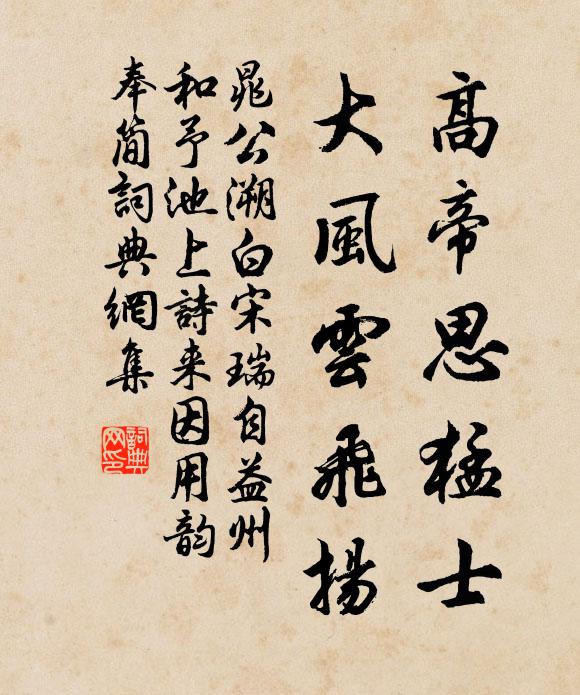 高帝思猛士
大風雲飛揚
晁公溯白宋瑞自益州
和予池上詩来因用韵
奉簡詞典網集
詞典网印